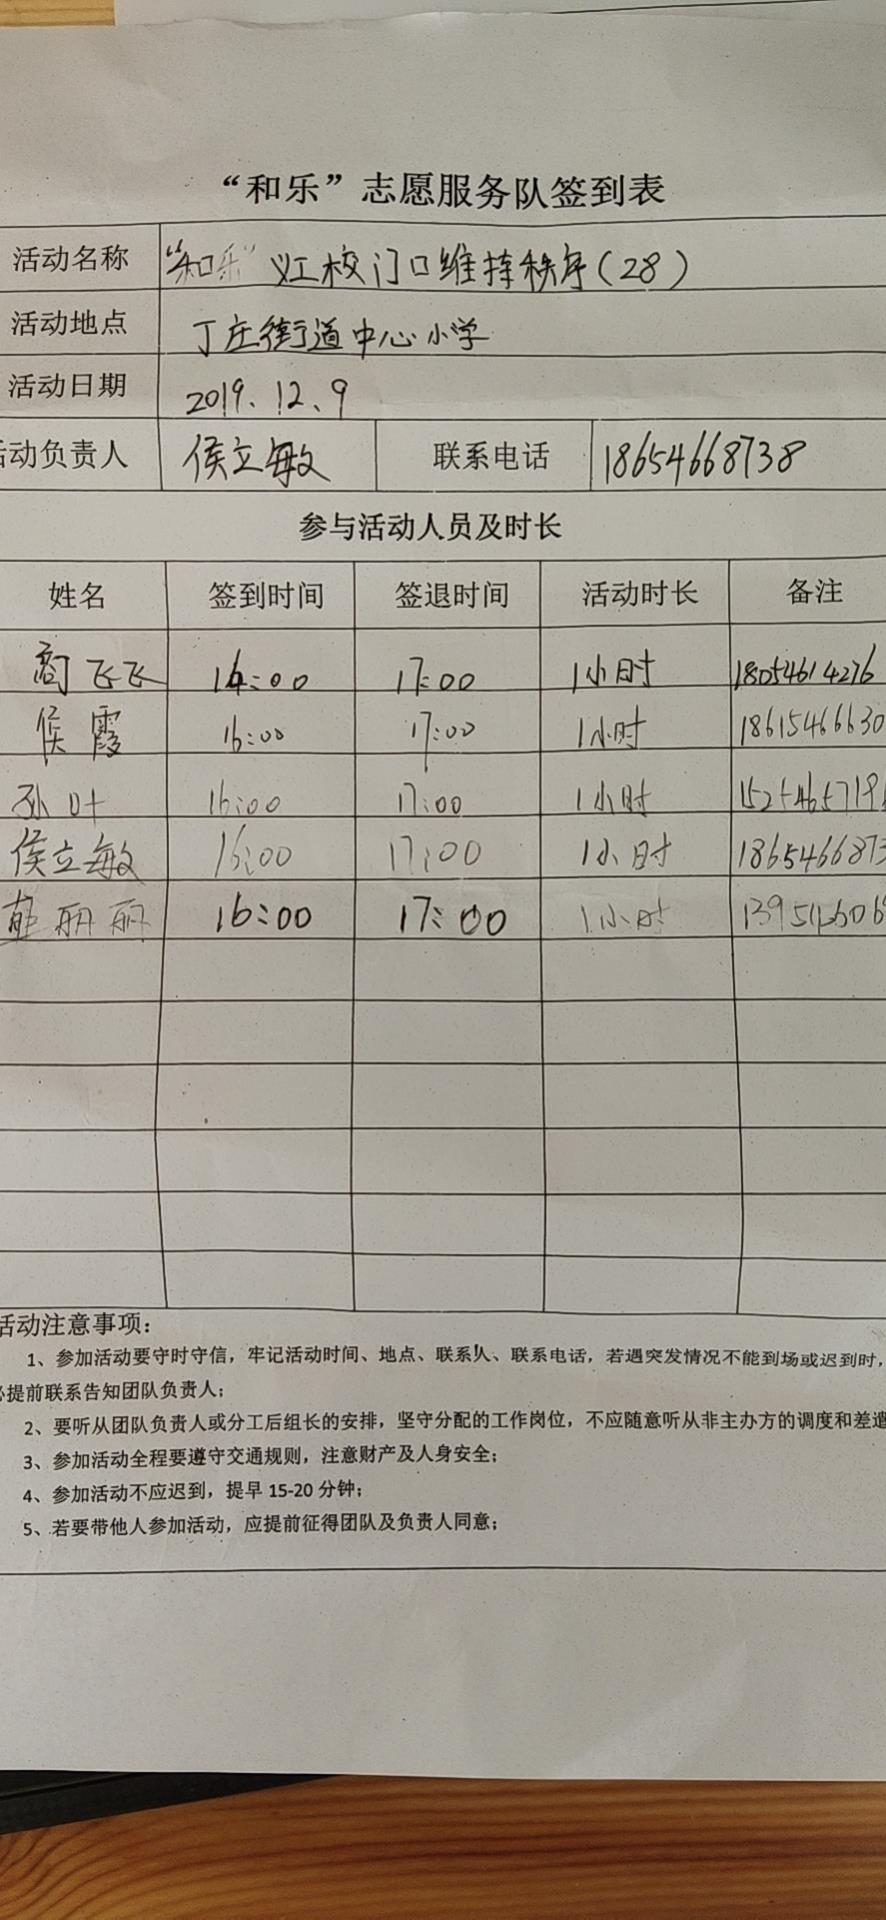 “和乐”志愿服务队签到表
活动名称 “和乐”义工校门口维持秩序(28)
活动地点 丁庄街道中心小学
活动日期 2019.12.9
活动负责人 侯立敏 联系电话 18654668738
参与活动人员及时长
姓名 签到时间 签退时间 活动时长 备注
商飞飞 16:00 17:00 1小时 18054614276
侯霞 16:00 17:00 1小时 18615466630
孙叶 16:00 17:00 1小时
侯立敏 16:00 17:00 1小时 1865466873
韩丽丽 16:00 17:00 1小时
活动注意事项:
1、参加活动要守时守信，牢记活动时间、地点、联系人、联系电话，若遇突发情况不能到场或迟到时，
必提前联系告知团队负责人;
2、要听从团队负责人或分工后组长的安排，坚守分配的工作岗位，不应随意听从非主办方的调度和差遣
3、参加活动全程要遵守交通规则，注意财产及人身安全;
4、参加活动不应迟到，提早 15-20 分钟;
5、若要带他人参加活动，应提前征得团队及负责人同意;